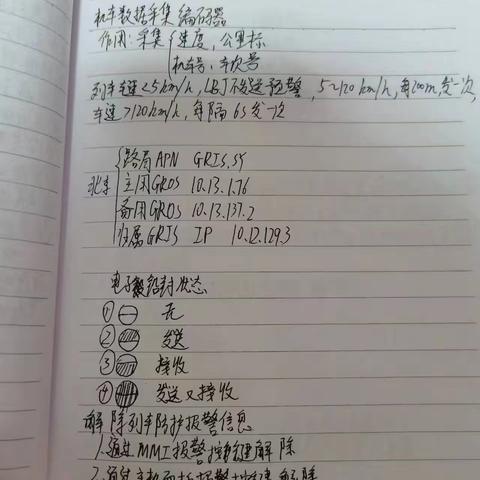 机车数据采集编码器
作用:采集{速度,公里标
机车号、车次号
列车车速<5km/h,LBJ不发送预警,5~120km/h,每200m,发一次,
车速>120km/h,每隔6S发一次
路局APN GRIS.SY
北京 主用GROS 10.13.1.76
备用GROS 10.13.137.2
归属GRIS IP 10.12.129.3
电子铅封状态
① 无
② 发送
③ 接收
④ 发送又接收
解除列车防护报警信息
1.通过MMI报警按键解除
2.通过主机面板报警按键解除